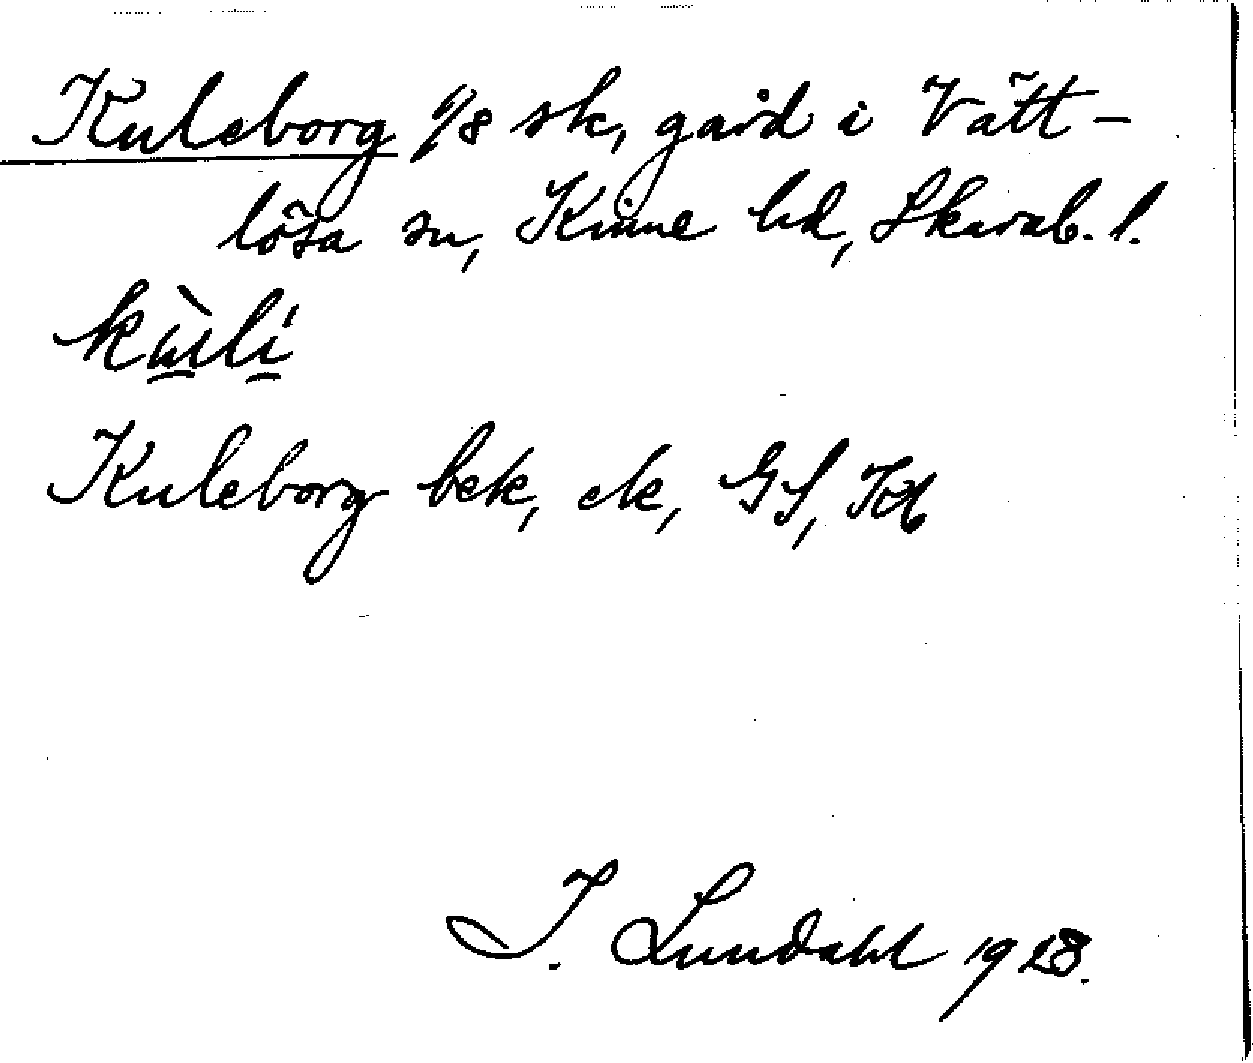 Kuleborg 1/8 sk, gård i Vätt-
lösa sn, Kinne hd, Skarab. l.
kùli
Kuleborg bek, ek, GS, KA
I. Lundahl 1928.